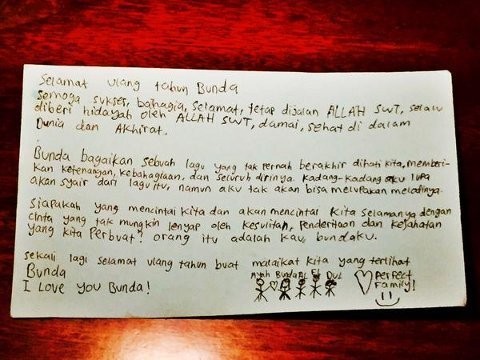 Selamat ulang tahun Bunda
Semoga sukses, bahagia, selamat, tetap dijalan ALLAH SWT, selalu
diberi hidayah oleh ALLAH SWT, damai, sehat di dalam
Dunia dan Akhirat.
Bunda bagaikan sebuah lagu yang tak pernah berakhir dihati kita, memberi-
kan ketenangan, kebahagiaan, dan seluruh dirinya. Kadang-kadang aku lupa
akan syair dari lagu itu, namun aku tak akan bisa melupakan melodinya.
Siapakah yang mencintai kita dan akan mencintai kita selamanya dengan
cinta yang tak mungkin lenyap oleh kesulitan, penderitaan dan kejahatan
yang kita Perbuat? orang itu adalah kau, bundaku.
sekali lagi selamat ulang tahun buat malaikat kita yang terlihat
Bunda
Ayah Bunda El El Dul
Perfect
Family!
I Love You Bunda!